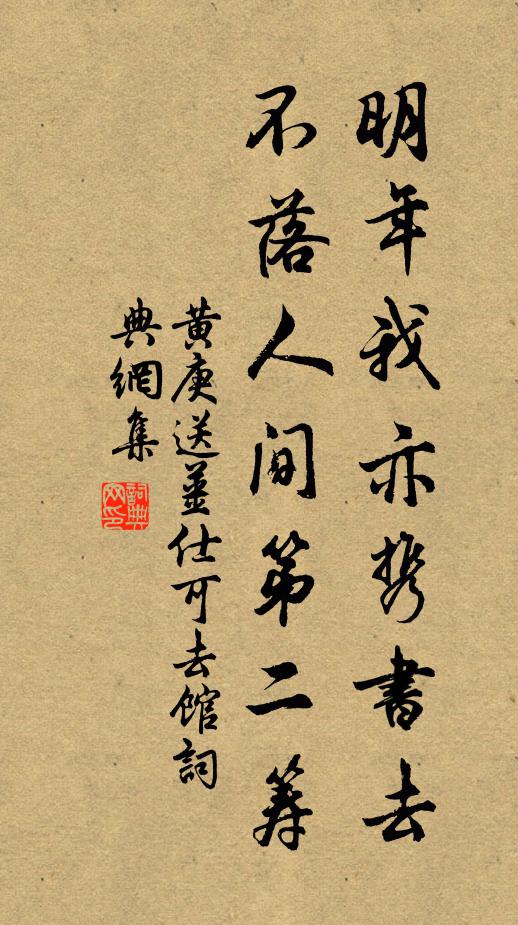 明年我亦携書去
不落人间第二筹
黄庚送姜仕可去館詞
典網集
詞典
网印